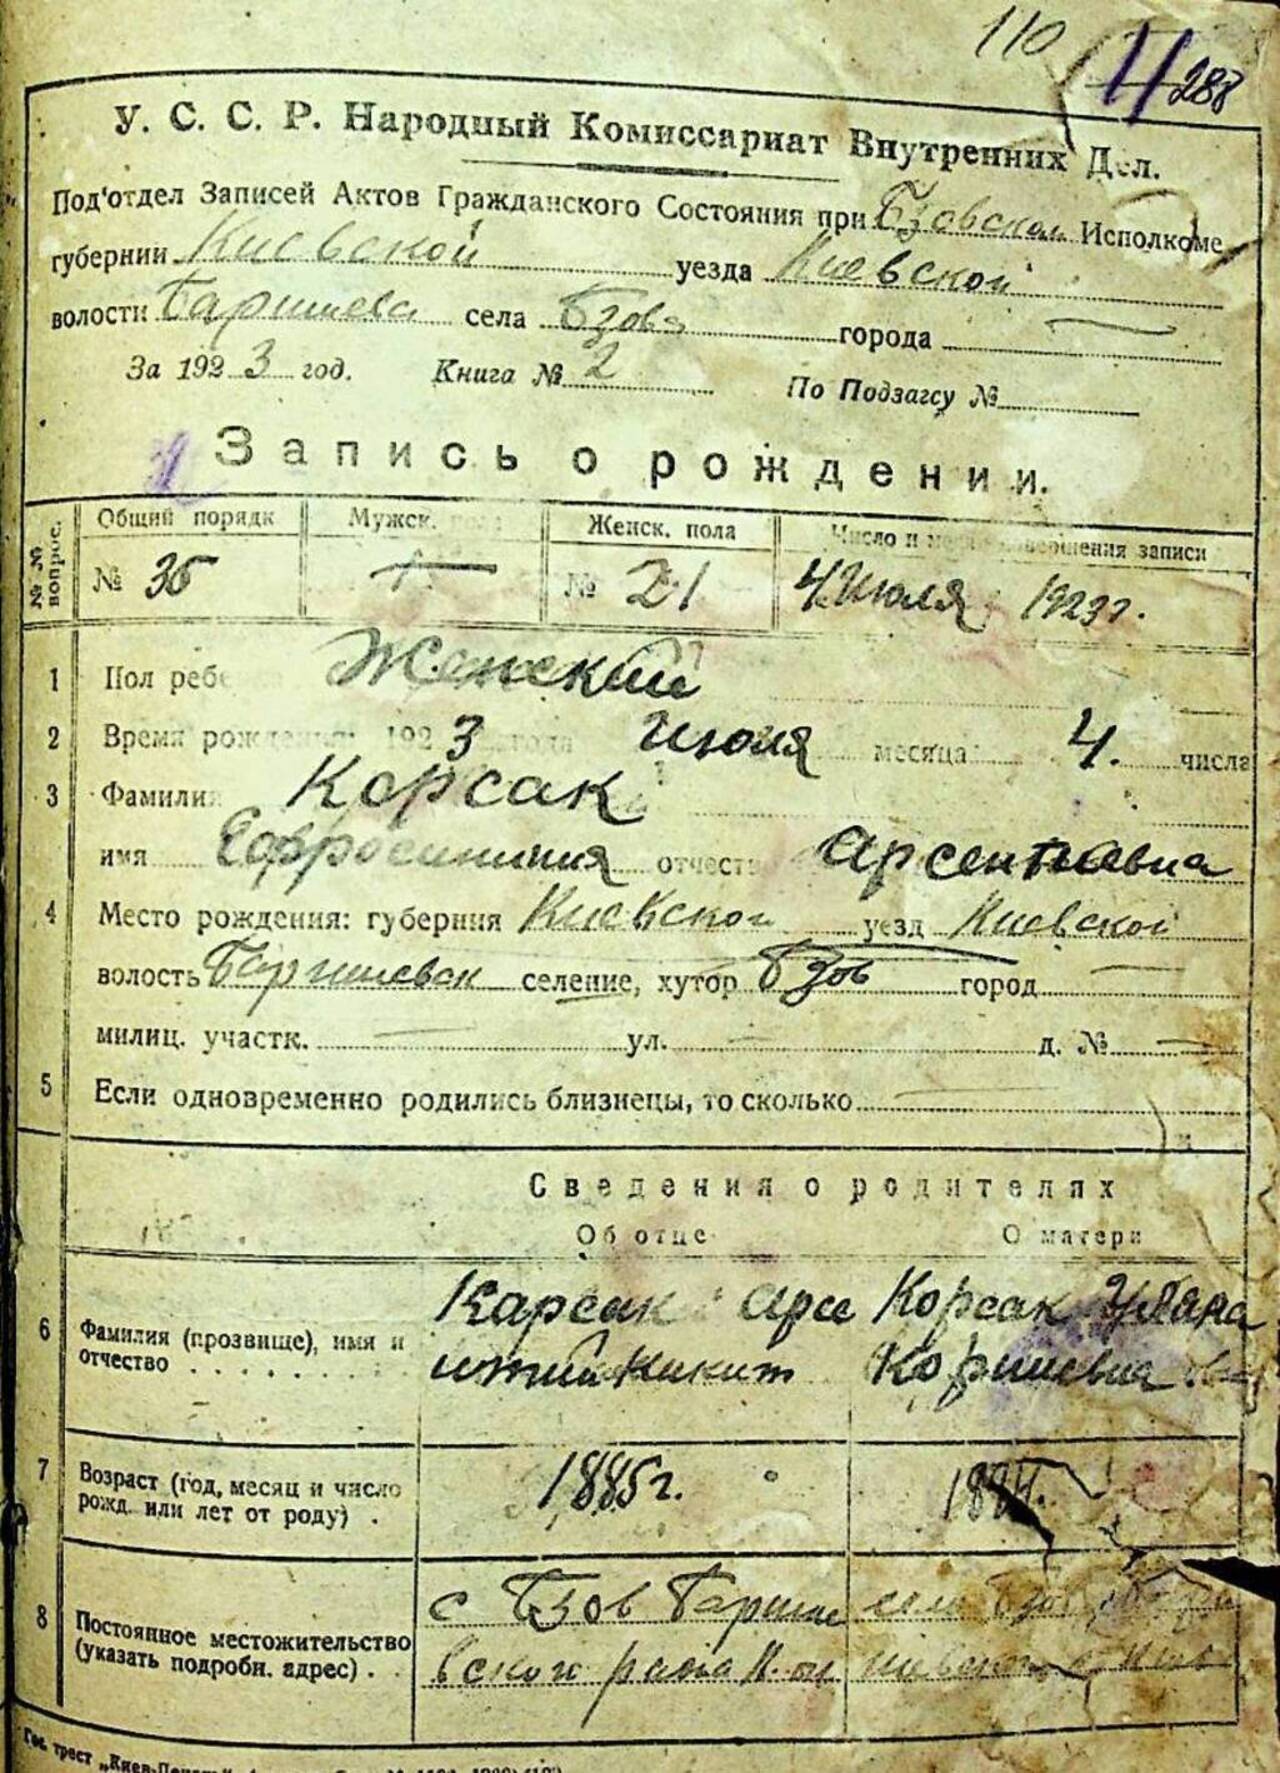 110 288
У. С. С. Р. Народный Комиссариат Внутренних Дел.
Под'отдел Записей Актов Гражданского Состояния при Бзовском Исполкоме
губернии Киевской уезда Киевской
волости Баришевск села Бзова города
За 1923 год. Книга № 2 По Подзагсу №
Запись о рождении.
№№ вопрос. Общий порядк Мужск. пола Женск. пола Число и месяц совершения записи
№ 35 № 21 4 Июля 1923 г.
1 Пол ребенка Женский
2 Время рождения: 1923 года Июля месяца 4. числа
3 Фамилия Корсак
имя Ефросиния отчество Арсентьевна
4 Место рождения: губерния Киевской уезд Киевской
волость Баришевск селение, хутор Бзов город
милиц. участк. ул. д. №
5 Если одновременно родились близнецы, то сколько
Сведения о родителях
Об отце О матери
6 Фамилия (прозвище), имя и отчество Карсак Арсентий Никит Корсак Уляна
7 Возраст (год, месяц и число рожд. или лет от роду) . 1885 г.
8 Постоянное местожительство (указать подробн. адрес) . с Бзов Баришевской